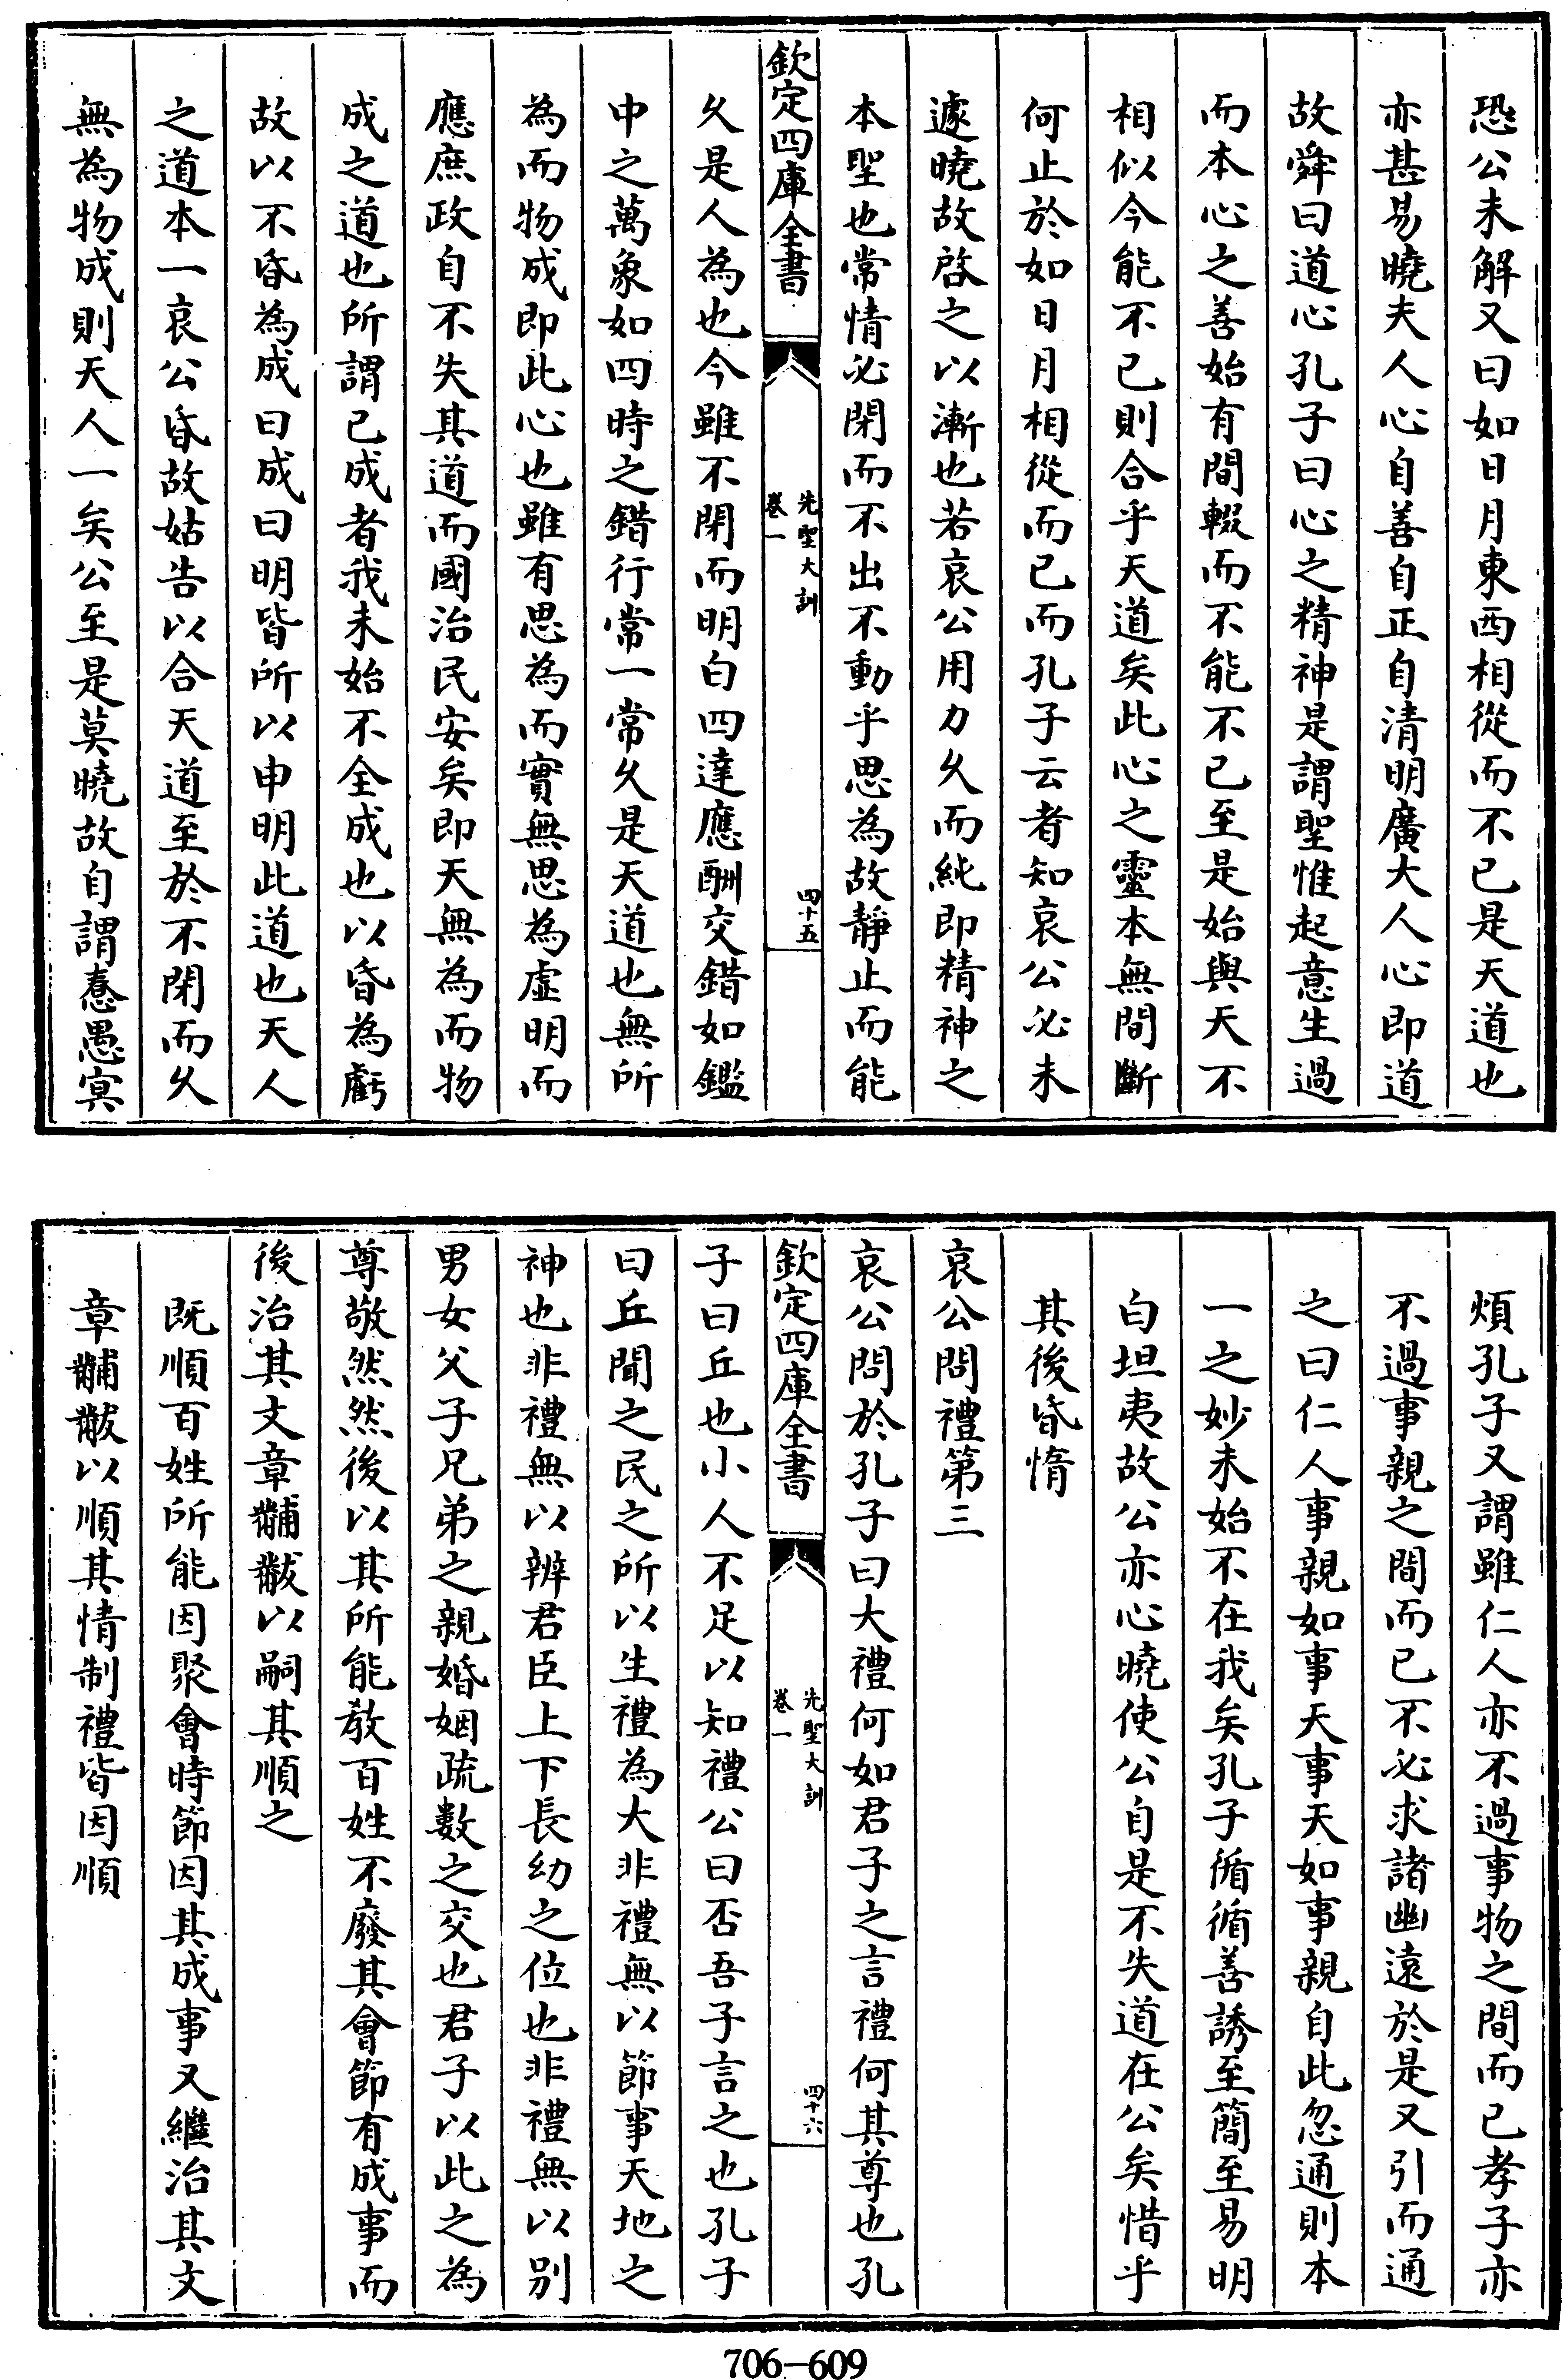 恐公未解又曰如日月東西相從而不已是天道也
亦甚易曉夫人心自善自正自清明廣大人心即道
故舜曰道心孔子曰心之精神是謂聖惟起意生過
而本心之善始有間輟而不能不已至是始與天不
相似今能不已則合乎天道矣此心之靈本無間斷
何止於如日月相從而已而孔子云者知哀公必未
遽曉故啓之以漸也若哀公用力久而純即精神之
本聖也常情必閉而不出不動乎思為故靜止而能
欽定四庫全書
先聖大訓
卷一
四十五
久是人為也今雖不閉而明白四達應酬交錯如鑑
中之萬象如四時之錯行常一常久是天道也無所
為而物成即此心也雖有思為而實無思為虛明而
應庶政自不失其道而國治民安矣即天無為而物
成之道也所謂已成者我未始不全成也以昏為虧
故以不昏為成曰成曰明皆所以申明此道也天人
之道本一哀公昏故姑告以合天道至於不閉而久
無為物成則天人一矣公至是莫曉故自謂惷愚冥
煩孔子又謂雖仁人亦不過事物之間而已孝子亦
不過事親之間而已不必求諸幽遠於是又引而通
之曰仁人事親如事天事天如事親自此忽通則本
一之妙未始不在我矣孔子循循善誘至簡至易明
白坦夷故公亦心曉使公自是不失道在公矣惜乎
其後昏惰
哀公問禮第三
哀公問於孔子曰大禮何如君子之言禮何其尊也孔
欽定四庫全書
先聖大訓
卷一
四十六
子曰丘也小人不足以知禮公曰否吾子言之也孔子
曰丘聞之民之所以生禮為大非禮無以節事天地之
神也非禮無以辨君臣上下長幼之位也非禮無以別
男女父子兄弟之親婚姻疏數之交也君子以此之為
尊敬然然後以其所能教百姓不廢其會節有成事而
後治其文章黼黻以嗣其順之
既順百姓所能因聚會時節因其成事又繼治其文
章黼黻以順其情制禮皆因順
706-609